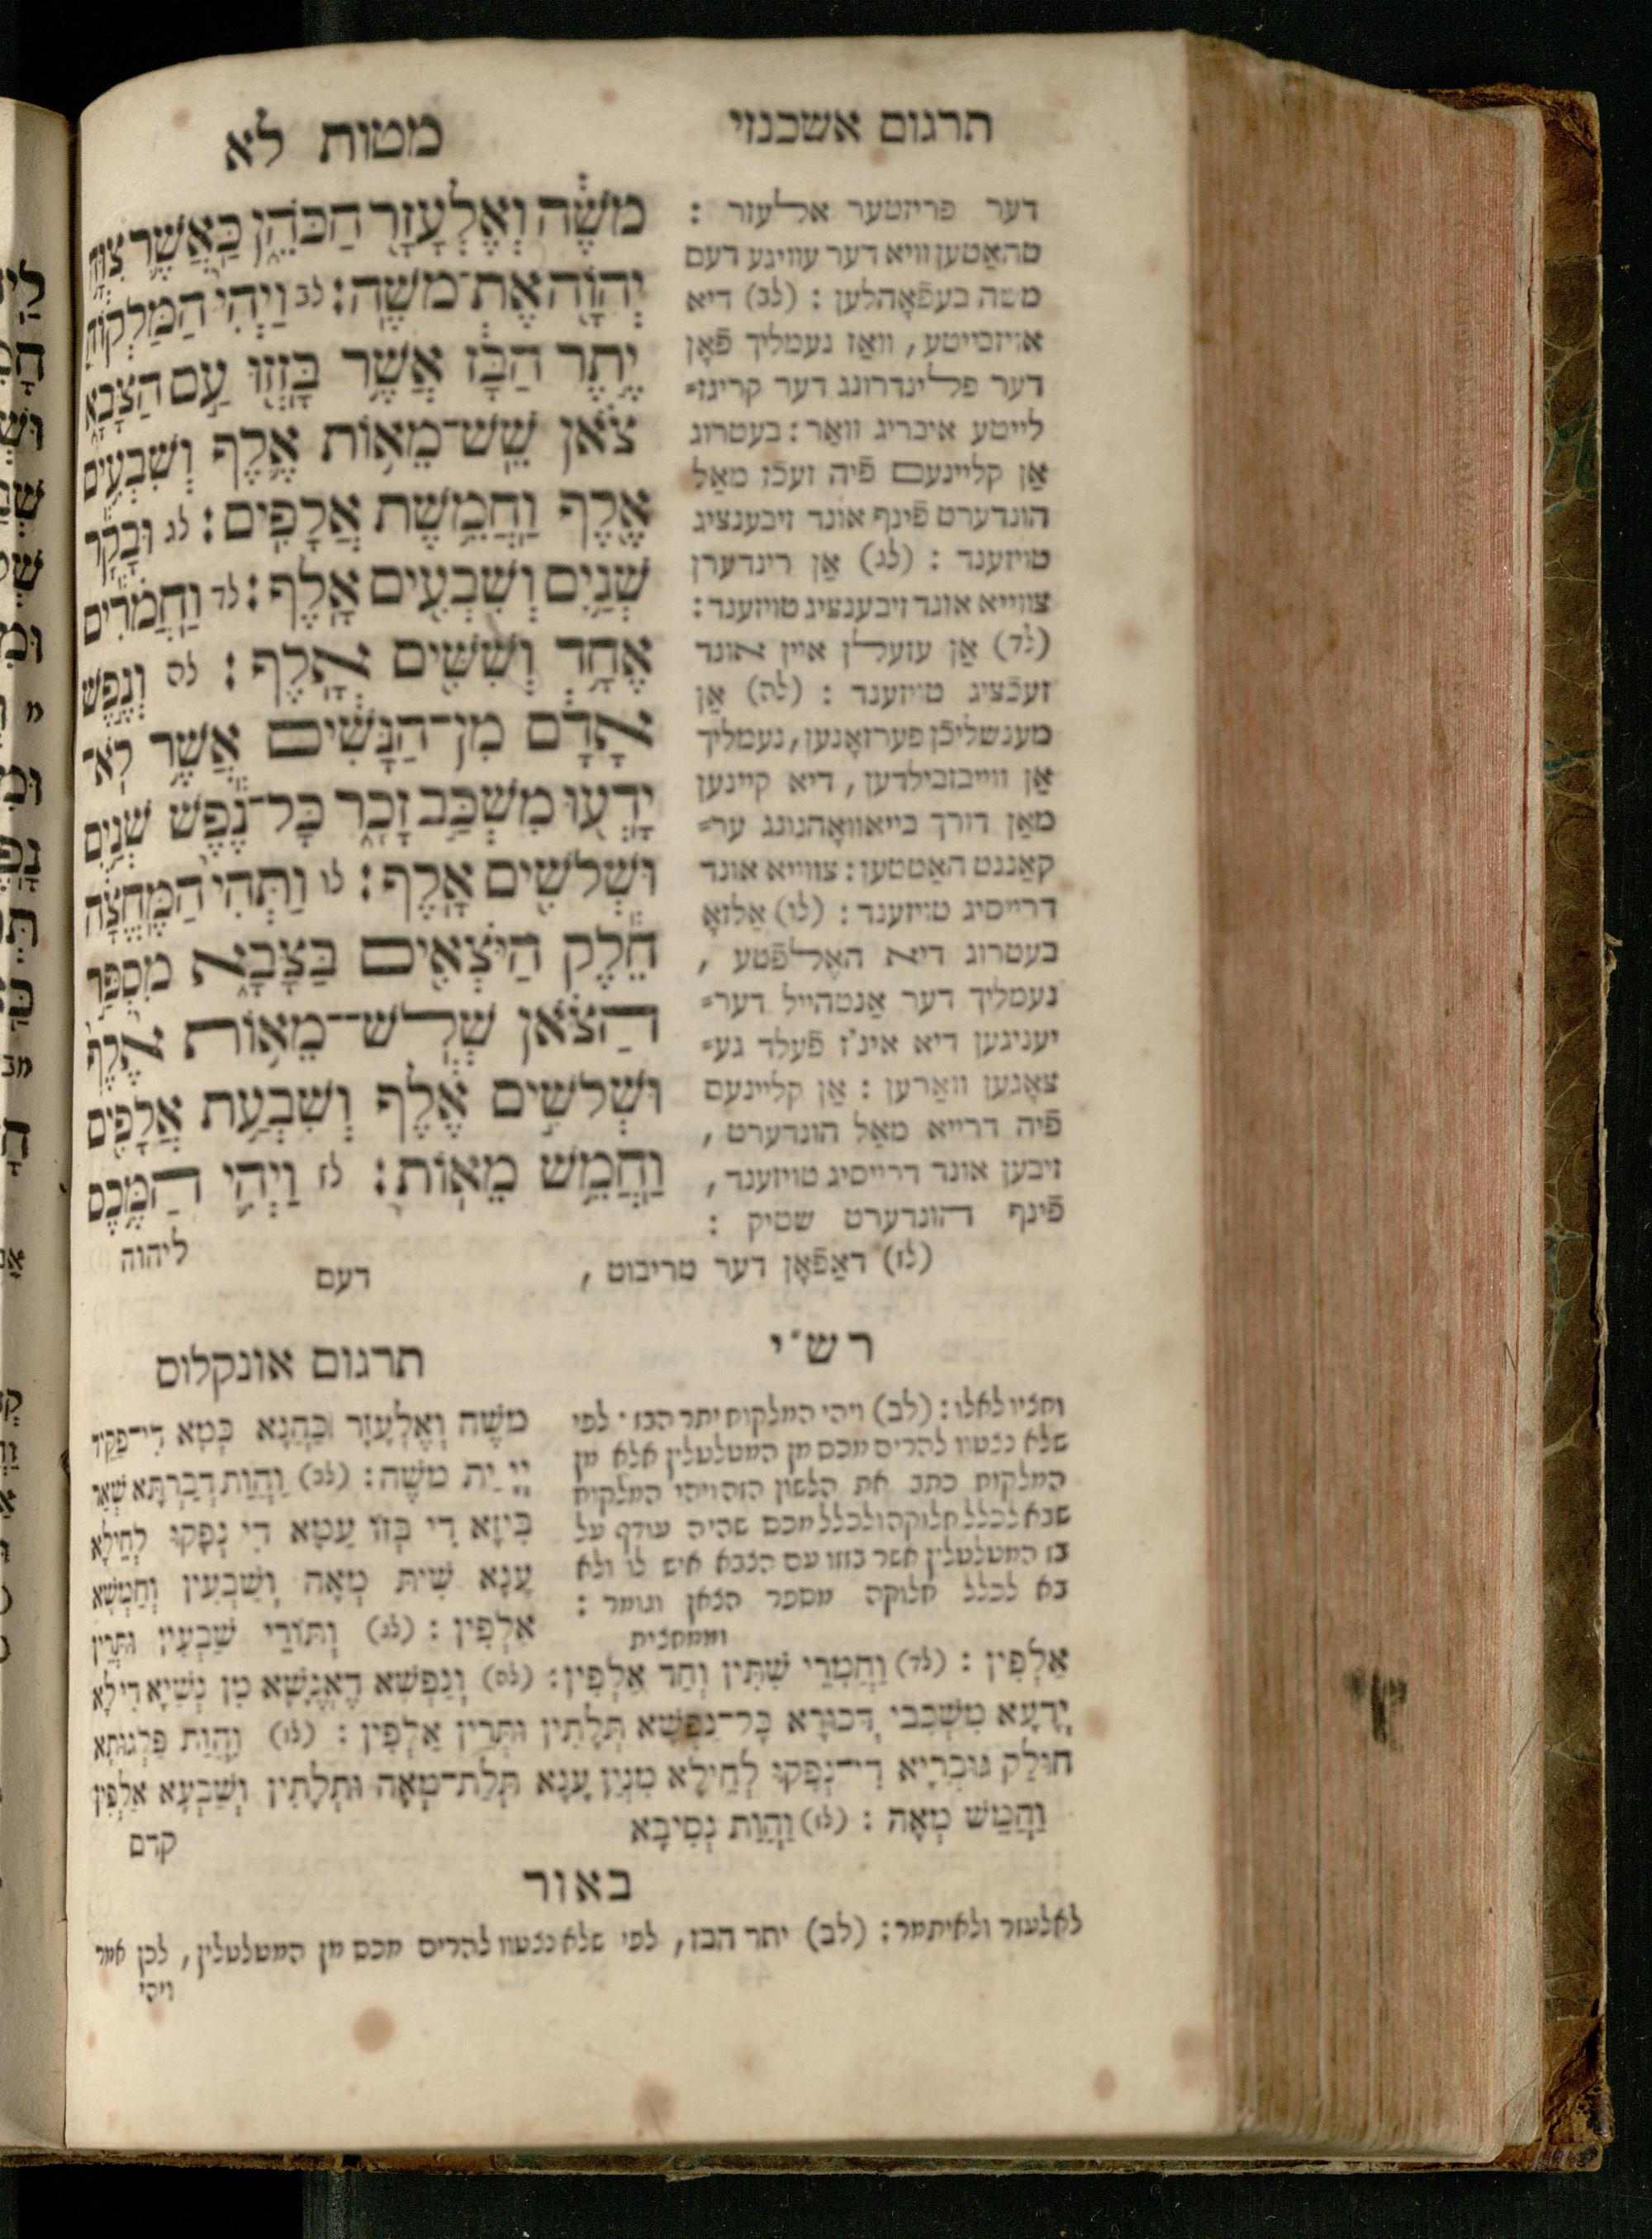 תרגום אשכנזי
מטות לא
משֶׁ֛ה וְאֶלְעָזָ֖ר הַכֹּהֵ֑ן כַּאֲשֶׁ֛ר צִוָּ֥ה
יְהוָ֖ה אֶת־משֶֽׁה׃ לב וַיְהִי֙ הַמַּלְק֔וֹחַ
יֶ֣תֶר הַבָּ֔ז אֲשֶׁ֥ר בָּזְז֖וּ עַ֣ם הַצָּבָ֑א
צֹ֗אן שֵׁשׁ־מֵא֥וֹת אֶ֛לֶף וְשִׁבְעִ֥ים
אֶ֖לֶף וַחֲמֵ֥שֶׁת אֲלָפִֽים׃ לג וּבָקָ֕ר
שְׁנַ֥יִם וְשִׁבְעִ֖ים אָֽלֶף׃ לד וַחֲמֹרִ֕ים
אֶחָ֥ד וְשִׁשִּׁ֖ים אָֽלֶף׃ לה וְנֶ֣פֶשׁ
אָדָ֔ם מִן־הַ֨נָּשִׁ֔ים אֲשֶׁ֥ר לֹֽא־
יָדְע֖וּ מִשְׁכַּ֣ב זָכָ֑ר כָּל־נֶ֕פֶשׁ שְׁנַ֥יִם
וּשְׁלשִׁ֖ים אָֽלֶף׃ לו וַתְּהִי֙ הַמֶּֽחֱצָ֔ה
חֵ֕לֶק הַיֹּצְאִ֖ים בַּצָּבָ֑א מִסְפַּ֣ר
הַצֹּ֗אן שְׁלשׁ־מֵא֥וֹת אֶ֙לֶף֙
וּשְׁלשִׁ֣ים אֶ֔לֶף וְשִׁבְעַ֥ת אֲלָפִ֖ים
וַחֲמֵ֥שׁ מֵאֽוֹת׃ לז וַיְהִ֛י הַמֶּ֥כֶס
ליהוה
דער פריזטער אלעזר :
טהאַטען וויא דער עוויגע דעם
משה בעפֿאָהלען : (לב) דיא
אויזבייטע, וואַז נעמליך פֿאָן
דער פלינדרונג דער קריגז=
לייטע איבריג וואַר: בעטרוג
אַן קליינעם פֿיה זעכֿז מאַל
הונדערט פֿינף אונד זיבענציג
טויזענד : (לג) אַן רינדערן
צווייא אונד זיבענציג טויזענד:
(לד) אַן עזעלן איין אונד
זעכֿציג טויזענד : (לה) אַן
מענשליכֿן פערזאָנען, נעמליך
אַן ווייבזבילדען, דיא קיינען
מאַן דורך בייאוואָהנונג ער=
קאַננט האַטטען: צווייא אונד
דרייסיג טויזענד : (לו) אַלזאָ
בעטרוג דיא האֶלפֿטע ,
נעמליך דער אַנטהייל דער=
יעניגען דיא אינ'ז פֿעלד גע=
צאָגען וואַרען : אַן קליינעם
פֿיה דרייא מאַל הונדערט ,
זיבען אונד דרייסיג טויזענד ,
פֿינף הונדערט שטיק :
(לז) דאַפֿאָן דער טריבוט ,
דעם
רש"י
וחציו לאלו: (לב) ויהי המלקוח יתר הבז · לפי
שלא נצטוו להרים מכס מן המטלטלין אלא מן
המלקוח כתב את הלשון הזה ויהי המלקוח
שבא לכלל חלוקה ולכלל מכס שהיה עודף על
בז המטלטלין אשר בזזו עם הצבא איש לו ולא
בא לכלל חלוקה מספר הצאן וגומר :
וממחצית
תרגום אונקלוס
משֶׁה וְאֶלְעָזָר כַּהֲנָא כְּמָא דִי־פַקִּיד
יְיָ יַת משֶׁה: (לב) וַהֲוַת דְּבַרְתָּא שְׁאַר
בִּיזָא דִי בְּזוֹ עַמָּא דִי נְפָקוּ לְחֵילָא
עָנָא שִׁית מְאָה וְשַׁבְעִין וְחַמְשָׁא
אַלְפִין : (לג) וְתוֹרֵי שַׁבְעִין וּתְרֵין
אַלְפִין : (לד) וַחֲמָרֵי שִׁתִּין וְחַד אַלְפִין: (לה) וְנַפְשָׁא דֶאֱנָשָׁא מִן נְשַׁיָּא דִילָא
יְדָעָא מִשְׁכְּבֵי דְּכוּרָא כָּל־נַפְשָׁא תְּלָתִין וּתְרֵין אַלְפִין : (לו) וַהֲוַת פַּלְגוּתָא
חוּלַק גּוּבְרַיָּא דִי־נְפָקוּ לְחֵילָא מִנְיַן עָנָא תְּלַת־מְאָה וּתְלָתִין וְשַׁבְעָא אַלְפִין
וַחֲמֵשׁ מְאָה : (לז) וַהֲוַת נְסִיבָא
קדם
באור
לאלעזר ולאיתמר: (לב) יתר הבז, לפי שלא נצטוו להרים מכס מן המטלטלין, לכן אמר
ויהי